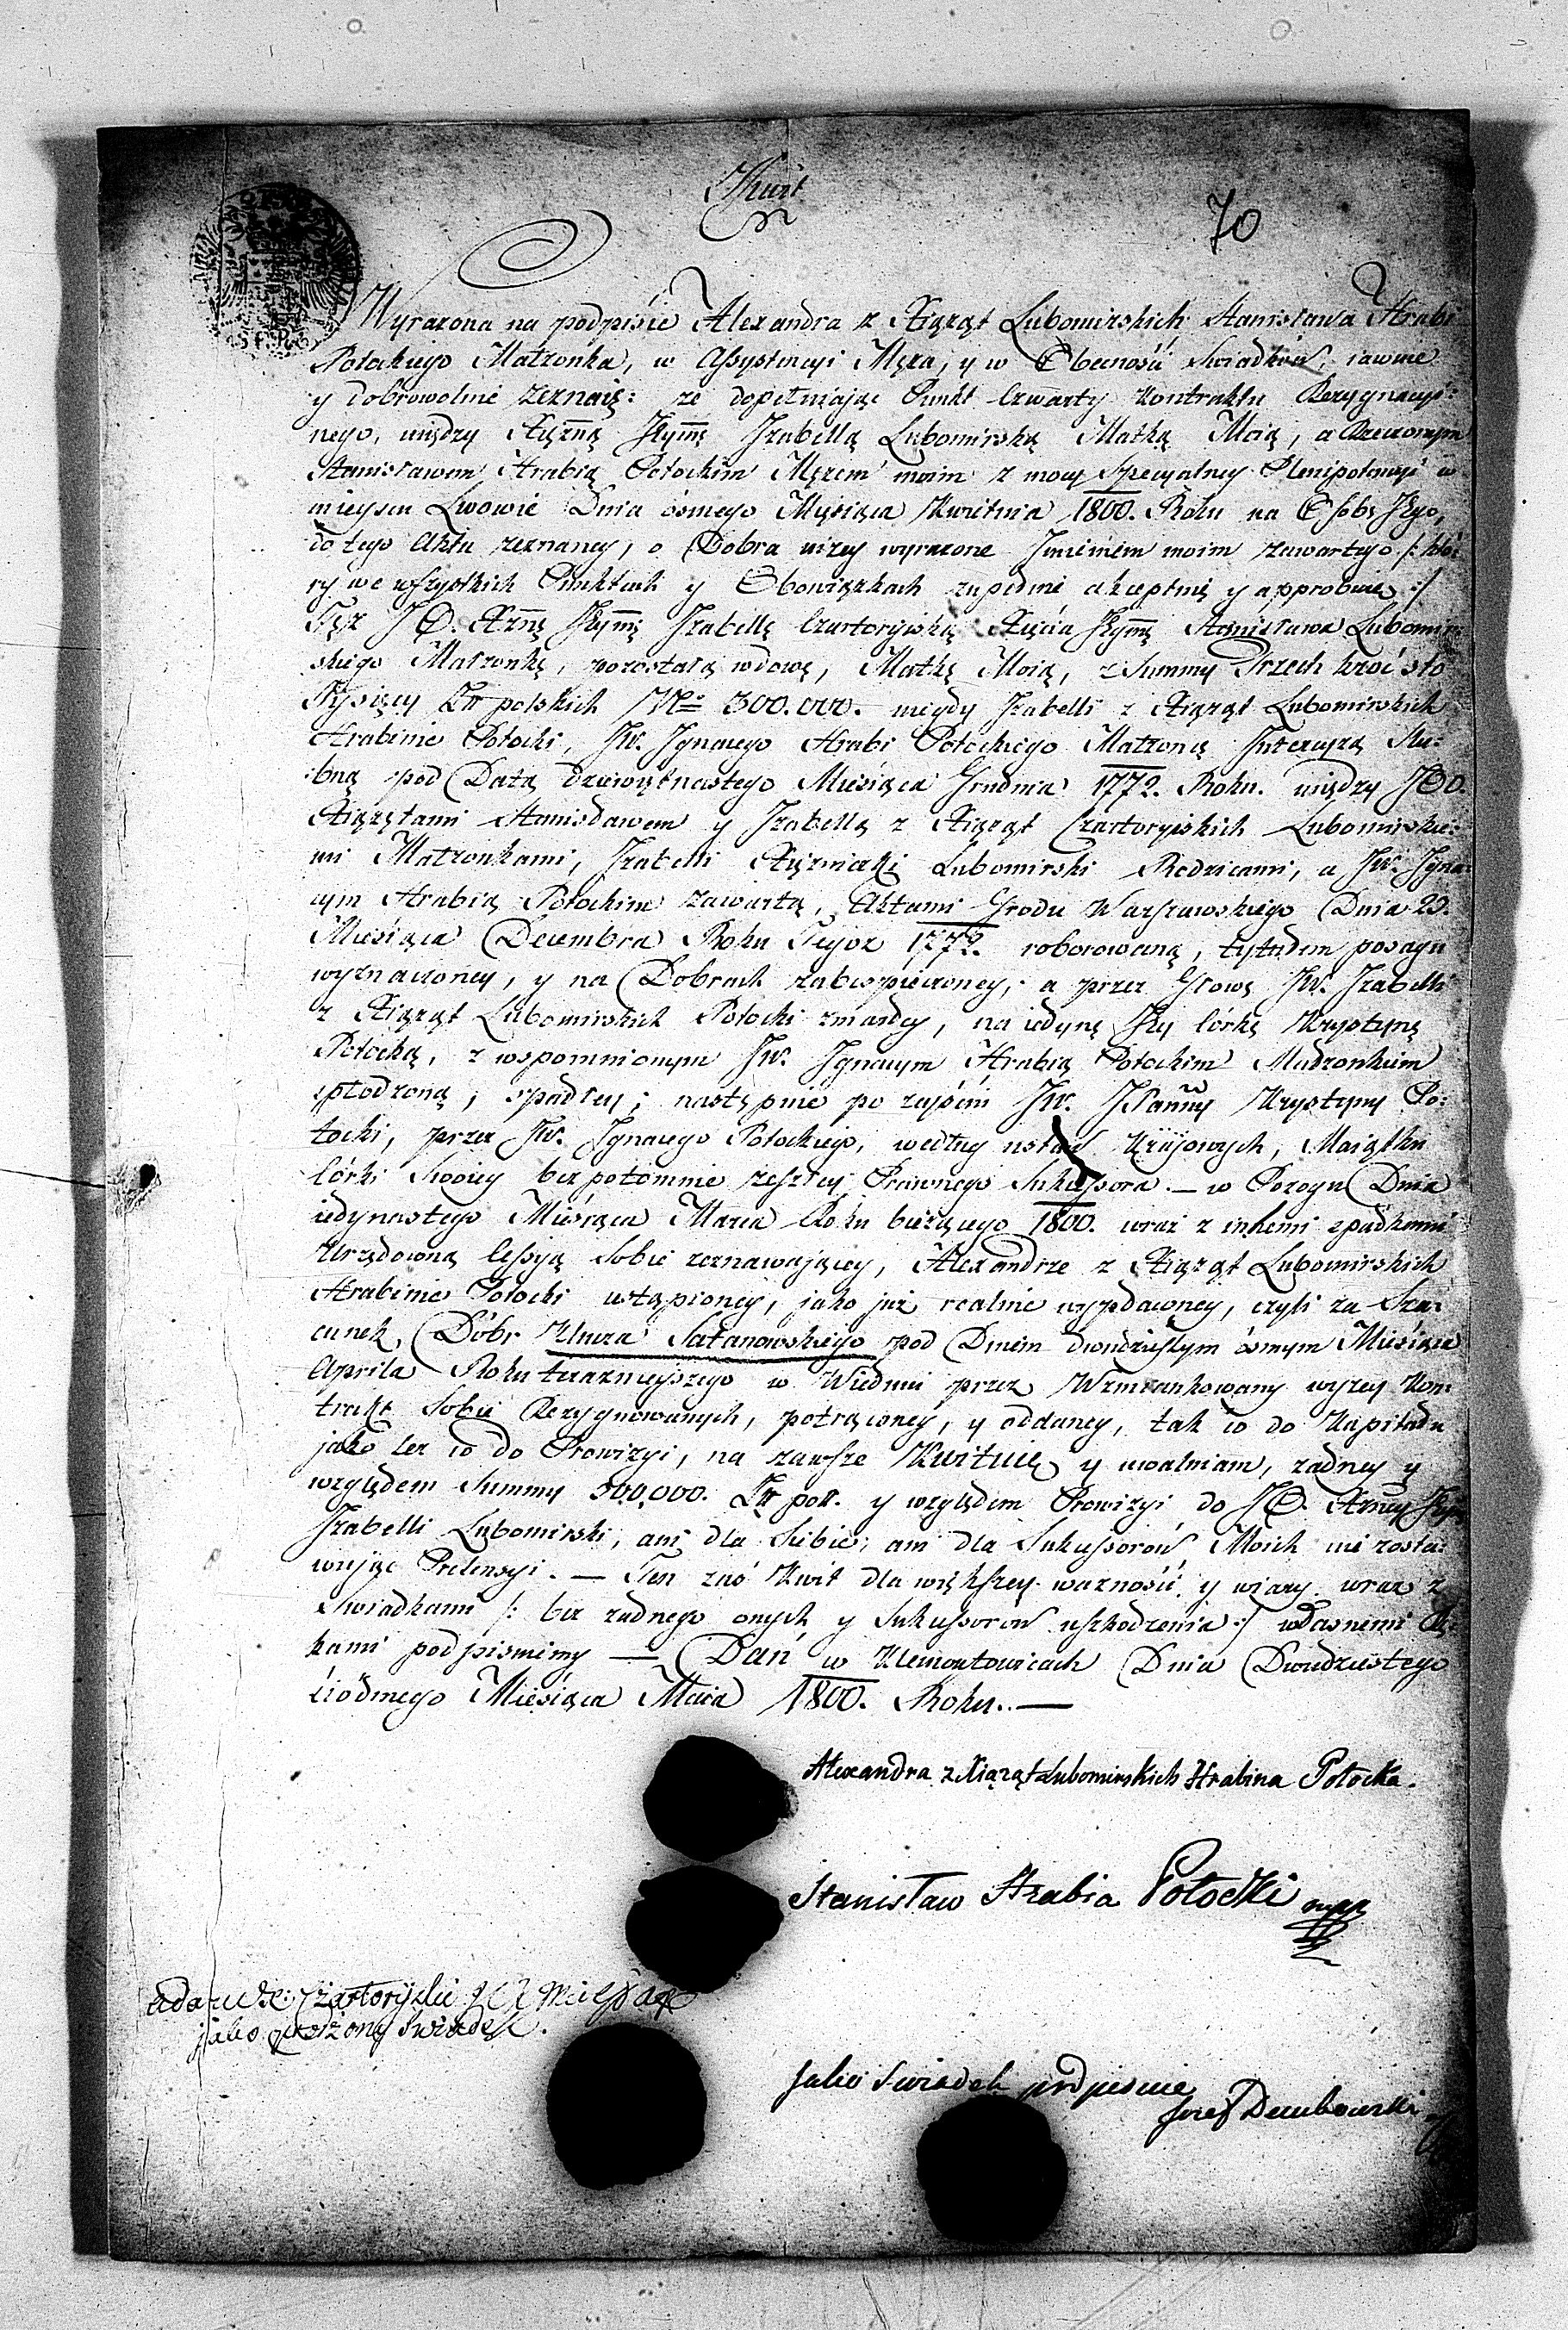 Kwit
70
Wyrazona na podpisie Alexandra z Xiążąt Lubomirskich Stanisława Hrabi
Potockiego Małzonka, w Assystencyi Męza, y w Obecności Swiadków, iawnie
y dobrowolnie zeznaię: ze dopełniaiąc Punkt Czwarty Kontraktu Rezygnacyi=
nego, między Xięzną Jeymę Izabellą Lubomirską Matką Moią, a Rzeczonym
Stanisławem Hrabią Potockim Męzem moim z mocy Specyalney Plenipotencyi w
mieyscu Lwowie Dnia ósmego Miesiąca Kwietnia 1800. Roku na Osobę Jego,
do tego Aktu zeznaney, o Dobra nizey wyrazone Imieniem moim zawartego /: któ=
ry we wszystkich Punktach y Obowiązkach zupełnie akceptuię y approbuię :/
Tęz JO. Xznę Jeymę Izabellę Czartoryiską Xięcia Jeymę Stanisława Lubomir=
skiego Małzonkę, pozostałą wdowę, Matkę Moią, z Summy Trzech kroć sto
Tysięcy Złt polskich Nro 300.000. niegdy Izabelli z Xiążąt Lubomirskich
Hrabinie Potocki, JW. Ignacego Hrabi Potockiego Małzonce Intercyzą Slu=
bną pod Datą dziewiętnastego Miesiąca Grudnia 1772. Roku. między JOO.
Xiążętami Stanisławem y Izabellą z Xiążąt Czartoryiskich Lubomirskie=
mi Małzonkami, Izabelli Xięzniczki Lubomirski Rodzicami, a JW. Igna=
cym Hrabią Potockim zawartą, Aktami Grodu Warszawskiego Dnia 29.
Miesiąca Decembra Roku Tegoz 1772. roborowaną, tytułem posagu
wyznaczoney, y na Dobrach zabespieczoney, a przez Głowę JW. Izabelli
z Xiążąt Lubomirskich Potocki zmarłey, na iedynę Jey Córkę Krystynę
Potocką, z wspomnionym JW. Ignacym Hrabią Potockim Małzonkiem
spłodzoną, spadłey; następnie po zeyściu JW. JPanny Krystyny Po=
tocki, przez JW. Ignacego Potockiego, według ustaw Kraiowych, Maiątku
Córki Swoiey bezpotomnie zeszłey Prawnego Sukcessora. — w Dnia
iedynastego Miesiąca Marca Roku bieżącego 1800. wraz z innemi spadkami
Urzędowną Cessyą Sobie zeznawaiącey, Alexandrze z Xiążąt Lubomirskich
Hrabinie Potocki ustąpioney, jako już realnie wypłaconey, czyli za Sza=
cunek, Dóbr Klucza Satanowskiego pod Dniem dwudziestym ósmym Miesiąca
Aprila Roku teraznieyszego w Wiedniu przez Wzmiankowany wyzey Kon=
trakt Sobie Rezygnowanych, potrąconey, y oddaney, tak co do Kapitału
jako tez co do Prowizyi, na zawsze Kwituię y uwalniam, zadney y
względem Summy 300,000. Złt pol. y względem Prowizyi do JO. Xzney Jey
Izabelli Lubomirski, ani dla Siebie, ani dla Sukcessorow Moich nie zosta=
wuiąc Pretensyi. — Ten zaś Kwit dla większey waznośći y wiary wraz z
Swiadkami /: bez zadnego onych y Sukcessorow uszkodzenia :/ własnemi Rę=
kami podpisuiemy — Dan w Klemontowicach Dnia Dwudziestego
siódmego Miesiąca Maia 1800. Roku. —
Alexandra z Xiążąt Lubomirskich Hrabina Potocka.
Stanisław Hrabia Potocki mpp
Adam Xże: Czartoryski
jako proszony Swiadek.
Jako Swiadek podpisuię
Jozef Dembowski